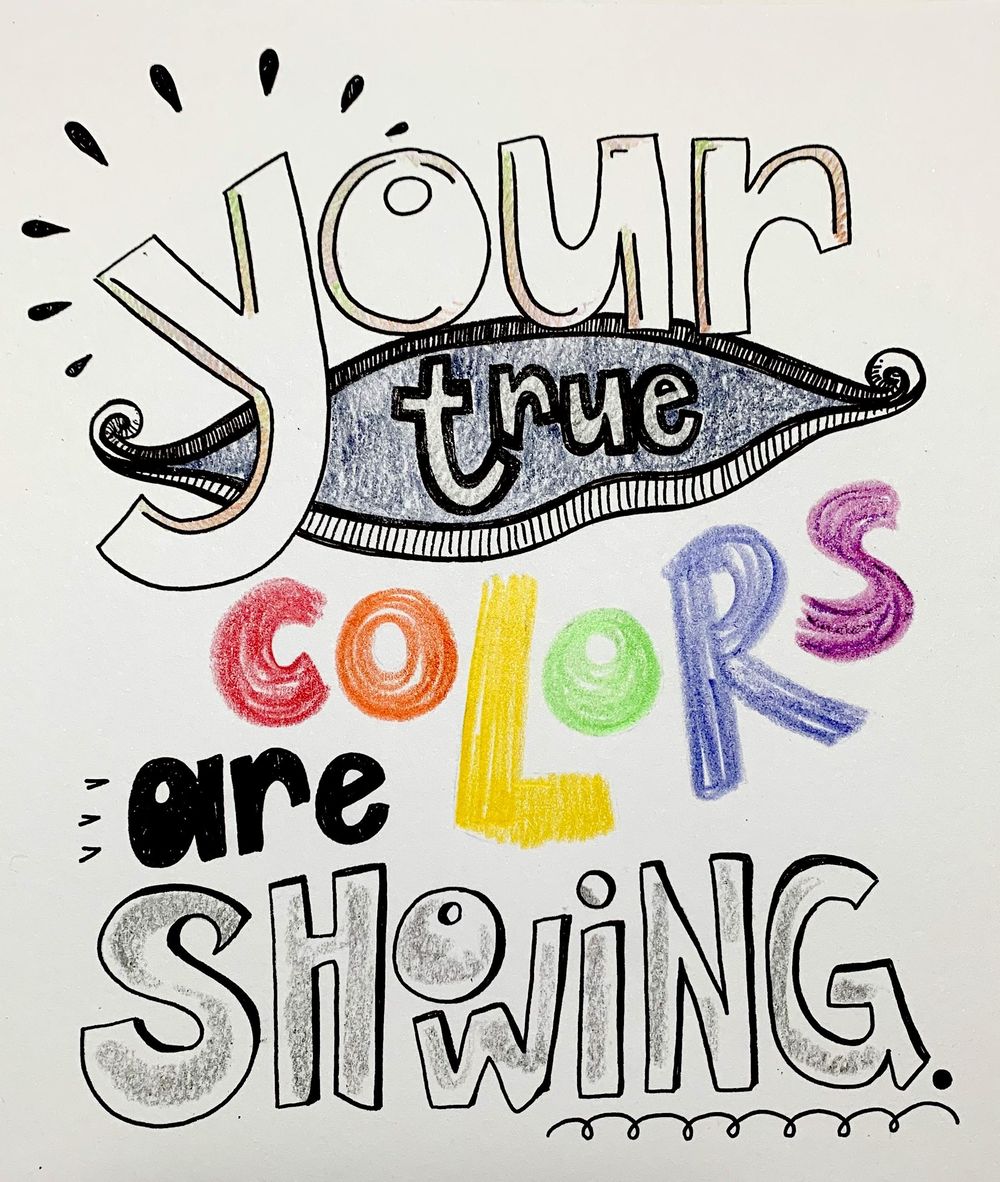 your
true
COLORS
are
SHOWiNG.